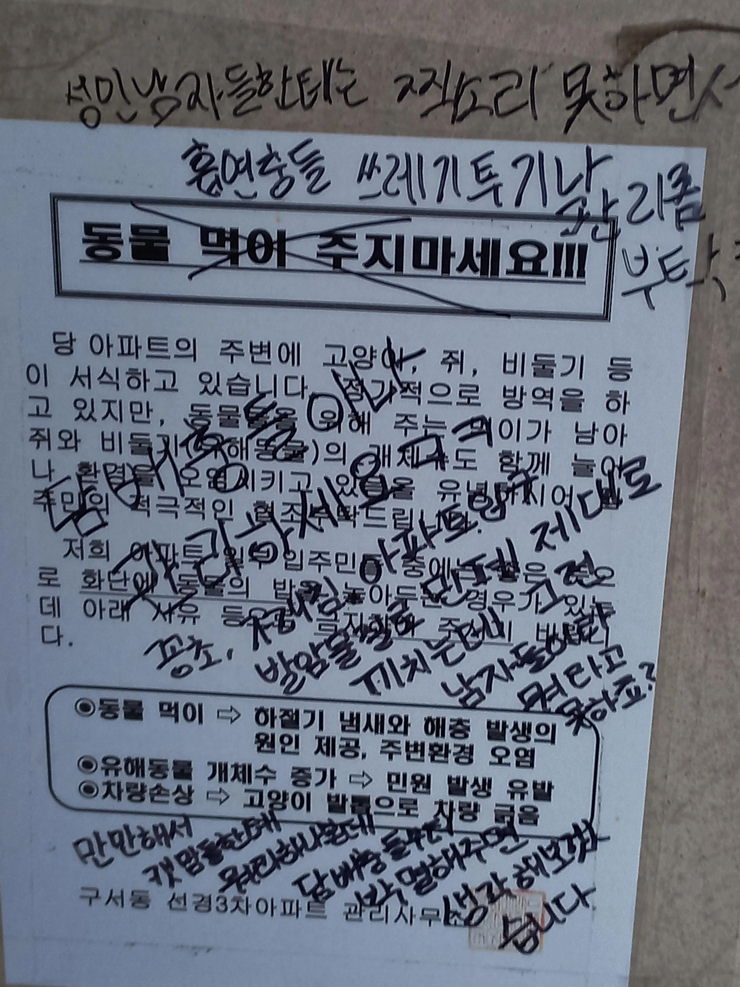 성인남자들한테는 찍소리 못하면서
흡연충들 쓰레기투기나
관리좀
부탁
동물 먹이 주지마세요!!!
당 아파트의 주변에 고양이, 쥐, 비둘기 등
이 서식하고 있습니다. 정기적으로 방역을 하
고 있지만, 동물들을 위해 주는 먹이가 남아
쥐와 비둘기(유해동물)의 개체수도 함께 늘어
나 환경을 오염시키고 있음을 유념하시어 입
주민의 적극적인 협조부탁드립니다.
담배충들이나
관리하세요 그리
저희 아파트 일부 입주민들 중에
로 화단에 동물의 밥을 놓아두는 경우가 있는
데 아래 사유 등으로
다.
꽁초,
아파트
발암물질로 민폐 제대로
끼치는데
남자들이라
뭐라고
못하죠?
◉동물 먹이 ⇨ 하절기 냄새와 해충 발생의
원인 제공, 주변환경 오염
◉유해동물 개체수 증가 ⇨ 민원 발생 유발
◉차량손상 ⇨ 고양이 발톱으로 차량 긁음
만만해서
캣맘들한테
뭐라하나본데
담배충들부터
박멸해주면
생각해보겠
습니다
구서동 선경3차아파트 관리사무소